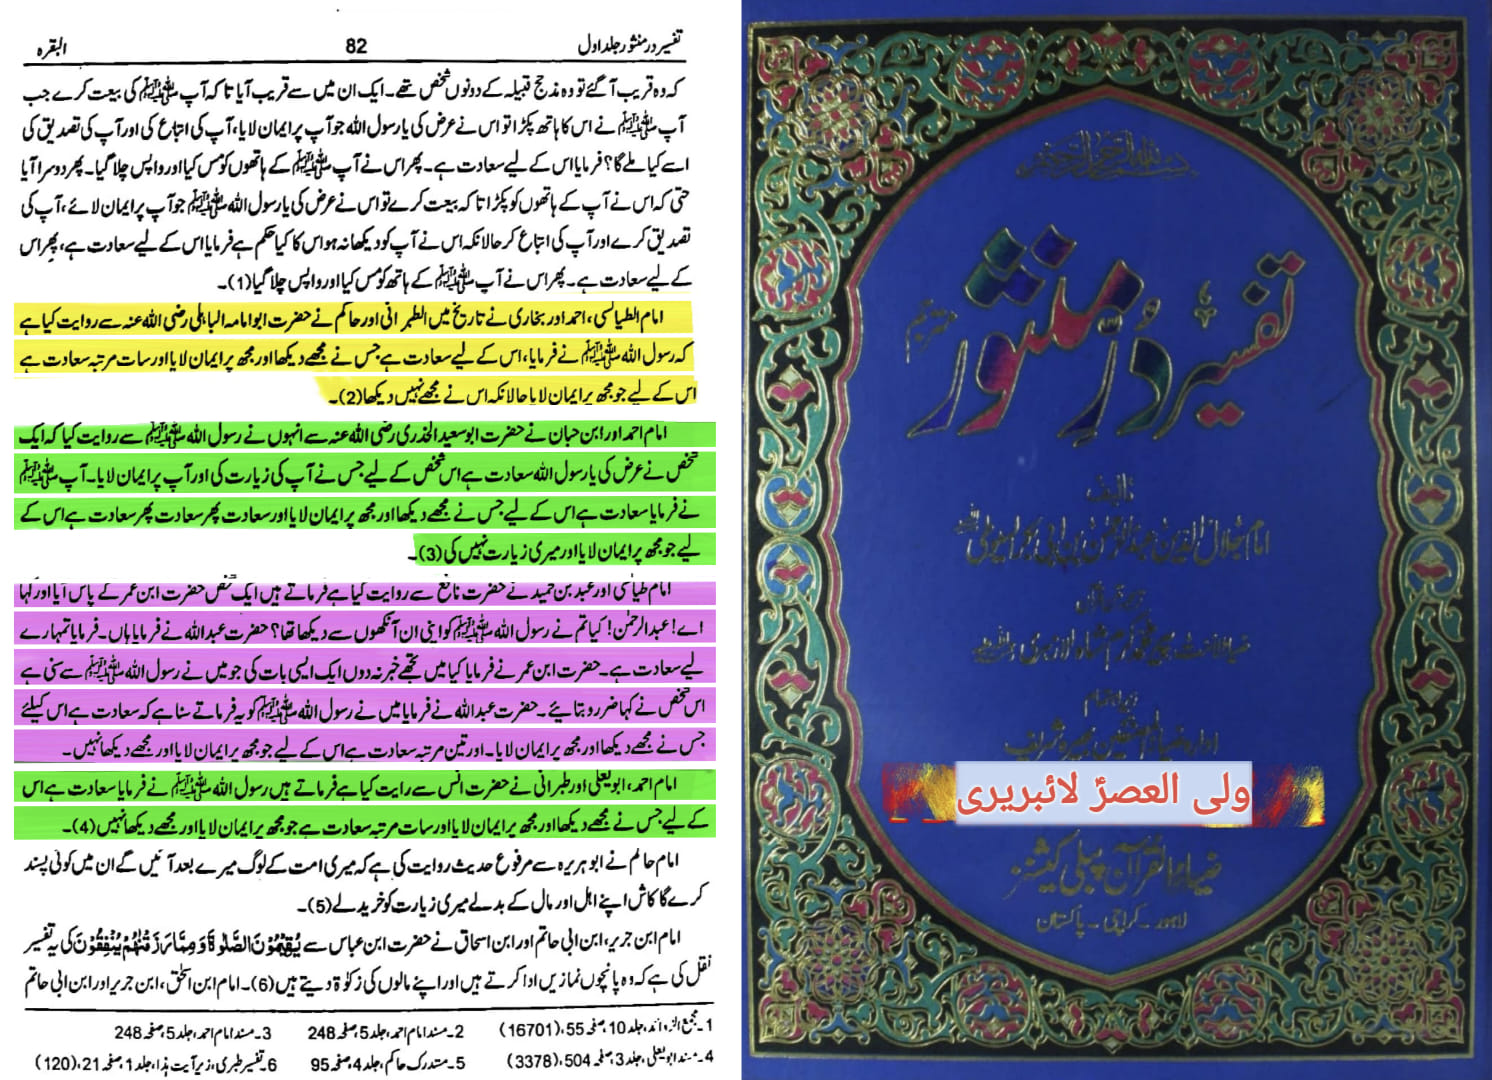 تفسیر درمنثور جلد اول
82
البقرہ
کہ وہ قریب آ گئے تو وہ مذحج قبیلہ کے دونوں شخص تھے۔ ایک ان میں سے قریب آیا تا کہ آپ ﷺ کی بیعت کرے جب
آپ ﷺ نے اس کا ہاتھ پکڑا تو اس نے عرض کی یا رسول اللہ جو آپ پر ایمان لایا، آپ کی اتباع کی اور آپ کی تصدیق کی
اسے کیا ملے گا؟ فرمایا اس کے لیے سعادت ہے۔ پھر اس نے آپ ﷺ کے ہاتھوں کو مس کیا اور واپس چلا گیا۔ پھر دوسرا آیا
حتی کہ اس نے آپ کے ہاتھوں کو پکڑا تا کہ بیعت کرے تو اس نے عرض کی یا رسول اللہ ﷺ جو آپ پر ایمان لائے، آپ کی
تصدیق کرے اور آپ کی اتباع کرحالانکہ اس نے آپ کو دیکھا نہ ہو اس کا کیا حکم ہے فرمایا اس کے لیے سعادت ہے، پھر اس
کے لیے سعادت ہے۔ پھر اس نے آپ ﷺ کے ہاتھ کو مس کیا اور واپس چلا گیا (1)۔
امام الطیالسی، احمد اور بخاری نے تاریخ میں الطبرانی اور حاکم نے حضرت ابوامامہ الباہلی رضی اللہ عنہ سے روایت کیا ہے
کہ رسول اللہ ﷺ نے فرمایا، اس کے لیے سعادت ہے جس نے مجھے دیکھا اور مجھ پر ایمان لایا اور سات مرتبہ سعادت ہے
اس کے لیے جو مجھ پر ایمان لایا حالانکہ اس نے مجھے نہیں دیکھا (2)۔
امام احمد اور ابن حبان نے حضرت ابوسعید الخدری رضی اللہ عنہ سے انہوں نے رسول اللہ ﷺ سے روایت کیا کہ ایک
شخص نے عرض کی یا رسول اللہ سعادت ہے اس شخص کے لیے جس نے آپ کی زیارت کی اور آپ پر ایمان لایا۔ آپ ﷺ
نے فرمایا سعادت ہے اس کے لیے جس نے مجھے دیکھا اور مجھ پر ایمان لایا اور سعادت پھر سعادت پھر سعادت ہے اس کے
لیے جو مجھ پر ایمان لایا اور میری زیارت نہیں کی (3)۔
امام طیالسی اور عبد بن حمید نے حضرت نافع سے روایت کیا ہے فرماتے ہیں ایک شخص حضرت ابن عمر کے پاس آیا اور کہا
اے! عبدالرحمٰن! کیا تم نے رسول اللہ ﷺ کو اپنی ان آنکھوں سے دیکھا تھا؟ حضرت عبداللہ نے فرمایا ہاں۔ فرمایا تمہارے
لیے سعادت ہے۔ حضرت ابن عمر نے فرمایا کیا میں تجھے خبر نہ دوں ایک ایسی بات کی جو میں نے رسول اللہ ﷺ سے سنی ہے
اس شخص نے کہا ضرور بتائیے۔ حضرت عبداللہ نے فرمایا میں نے رسول اللہ ﷺ کو یہ فرماتے سنا ہے کہ سعادت ہے اس کیلئے
جس نے مجھے دیکھا اور مجھ پر ایمان لایا۔ اور تین مرتبہ سعادت ہے اس کے لیے جو مجھ پر ایمان لایا اور مجھے دیکھا نہیں۔
امام احمد، ابویعلیٰ اور طبرانی نے حضرت انس سے رایت کیا ہے فرماتے ہیں رسول اللہ ﷺ نے فرمایا سعادت ہے اس
کے لیے جس نے مجھے دیکھا اور مجھ پر ایمان لایا اور سات مرتبہ سعادت ہے جو مجھ پر ایمان لایا اور مجھے دیکھا نہیں (4)۔
امام حاکم نے ابوہریرہ سے مرفوع حدیث روایت کی ہے کہ میری امت کے لوگ میرے بعد آئیں گے ان میں کوئی پسند
کرے گا کاش اپنے اہل اور مال کے بدلے میری زیارت کو خریدلے (5)۔
امام ابن جریر، ابن ابی حاتم اور ابن اسحاق نے حضرت ابن عباس سے یُقِیْمُوْنَ الصَّلٰوةَ وَمِمَّا رَزَقْنٰهُمْ یُنْفِقُوْنَ کی یہ تفسیر
نقل کی ہے کہ وہ پانچوں نمازیں ادا کرتے ہیں اور اپنے مالوں کی زکوٰۃ دیتے ہیں (6)۔ امام ابن اسحٰق، ابن جریر اور ابن ابی حاتم
1۔ مجمع الزوائد، جلد 10، صفحہ 55، (16701)
2۔ مسند امام احمد، جلد 5، صفحہ 248
3۔ مسند امام احمد، جلد 5، صفحہ 248
4۔ مسند ابویعلیٰ، جلد 3، صفحہ 504، (3378)
5۔ مستدرک حاکم، جلد 4، صفحہ 95
6۔ تفسیر طبری، زیر آیت ہذا، جلد 1، صفحہ 21، (120)
بسم اللہ الرحمن الرحیم
تفسیر در منثور
مترجم
تالیف
امام جلال الدین عبدالرحمٰن بن ابی بکر السیوطی
ضیاء الامت پیر محمد کرم شاہ الازہری
زیر اہتمام
ادارہ ضیاء المصنفین بھیرہ شریف
ولی العصرؑ لائبریری
ضیاء القرآن پبلی کیشنز
لاہور - کراچی - پاکستان